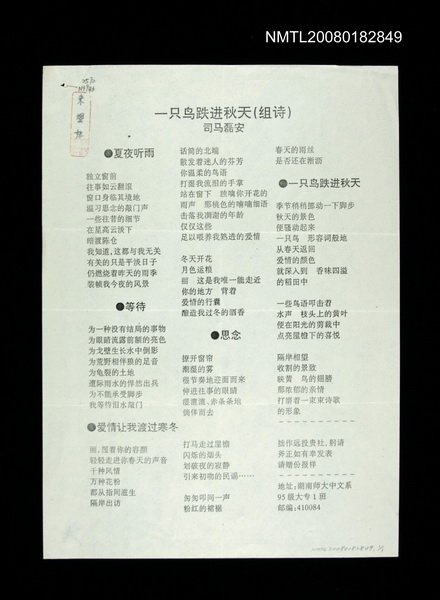 NMTL20080182849
一只鸟跌进秋天(组诗)
司马磊安
●夏夜听雨
独立窗前
往事如云翻滚
窗口身临其境地
温习思念的敲门声
一些往昔的细节
在星高云淡下
暗渡陈仓
我知道,这都与我无关
有关的只是平淡日子
仍燃烧着昨天的雨季
装帧我今夜的风景
●等待
为一种没有结局的事物
为眼睛流露前额的亮色
为戈壁生长水中倒影
为荒野相伴狼的足音
为龟裂的土地
遭际雨水的悍然出兵
为不能承受脚步
我等待泪水敲门
●爱情让我渡过寒冬
丽,围着你的容颜
轻轻走进你春天的声音
千种风情
万种花粉
都从指间滋生
隔岸出访
话筒的北端
散发着迷人的芬芳
你温柔的鸟语
打湿我流泪的手掌
站在窗下　聆喃你开花的
雨声　那桃色的喃喃细语
击落我凋谢的年龄
仅仅这些
足以喂养我熟透的爱情
冬天开花
月色运粮
丽　这是我唯一能走近
你的地方　背着
爱情的行囊
酿造我过冬的酒香
●思念
撩开窗帘
潮湿的雾
很节奏地迎面而来
伸进往事的眼睛
湿漉漉、赤条条地
倘佯而去
打马走过屋檐
闪烁的烟头
划破夜的寂静
引来初吻的民谣……
匆匆叩问一声
粉红的裙裾
春天的雨丝
是否还在淅沥
●一只鸟跌进秋天
季节稍稍挪动一下脚步
秋天的景色
便骚动起来
一只鸟　形容词般地
从春天返回
爱情的颜色
就深入到　香味四溢
的稻田中
一些鸟语叩击着
水声　枝头上的黄叶
便在阳光的剪裁中
点亮屋檐下的喜悦
隔岸相望
收割的景致
映黄　鸟的翅膀
那浓郁的亲情
打磨着一束束诗歌
的形象
拙作远投贵社,躬请
斧正如有幸发表
请赠份报样
地址:湖南师大中文系
95级大专1班
邮编:410084